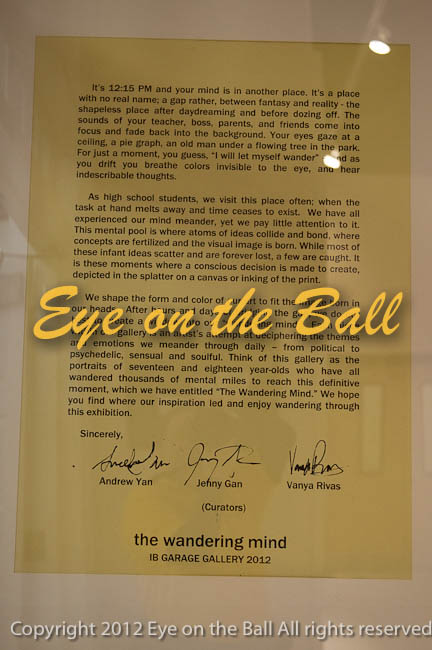 It's 12:15 PM and your mind is in another place. It's a place
with no real name; a gap rather, between fantasy and reality - the
shapeless place after daydreaming and before dozing off. The
sounds of your teacher, boss, parents, and friends come into
focus and fade back into the background. Your eyes gaze at a
ceiling, a pie graph, an old man under a flowing tree in the park.
For just a moment, you guess, "I will let myself wander" and as
you drift you breathe colors invisible to the eye, and hear
indescribable thoughts.
As high school students, we visit this place often; when the
task at hand melts away and time ceases to exist. We have all
experienced our mind meander, yet we pay little attention to it.
This mental pool is where atoms of ideas collide and bond, where
concepts are fertilized and the visual image is born. While most of
these infant ideas scatter and are forever lost, a few are caught. It
is these moments where a conscious decision is made to create,
depicted in the splatter on a canvas or inking of the print.
We shape the form and color of art to fit the image born in
our heads. After
Eye on the Ball
gallery is an artist's attempt at deciphering the themes
and emotions we meander through daily – from political to
psychedelic, sensual and soulful. Think of this gallery as the
portraits of seventeen and eighteen year-olds who have all
wandered thousands of mental miles to reach this definitive
moment, which we have entitled "The Wandering Mind." We hope
you find where our inspiration led and enjoy wandering through
this exhibition.
Sincerely,
Andrew Yan Jenny Gan Vanya Rivas
(Curators)
the wandering mind
IB GARAGE GALLERY 2012
Copyright 2012 Eye on the Ball All rights reserved